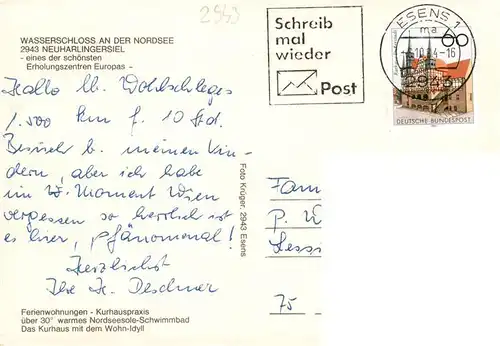 2943
WASSERSCHLOSS AN DER NORDSEE
2943 NEUHARLINGERSIEL
- eines der schönsten
Erholungszentren Europas -
Schreib
mal
wieder
Post
ESENS 1
ma
10.84-16
2943
60
DEUTSCHE BUNDESPOST
Hallo lb.
1.500 km f. 10 Std.
Besuch b. meinen Kin-
dern, aber ich habe
im Moment Wien
vergessen so herrlich ist
es hier, phänomenal!
Herzlichst
Ihre
Foto Krüger, 2943 Esens
Fam
P.
Lessi
75
Ferienwohnungen - Kurhauspraxis
über 30° warmes Nordseesole-Schwimmbad
Das Kurhaus mit dem Wohn-Idyll